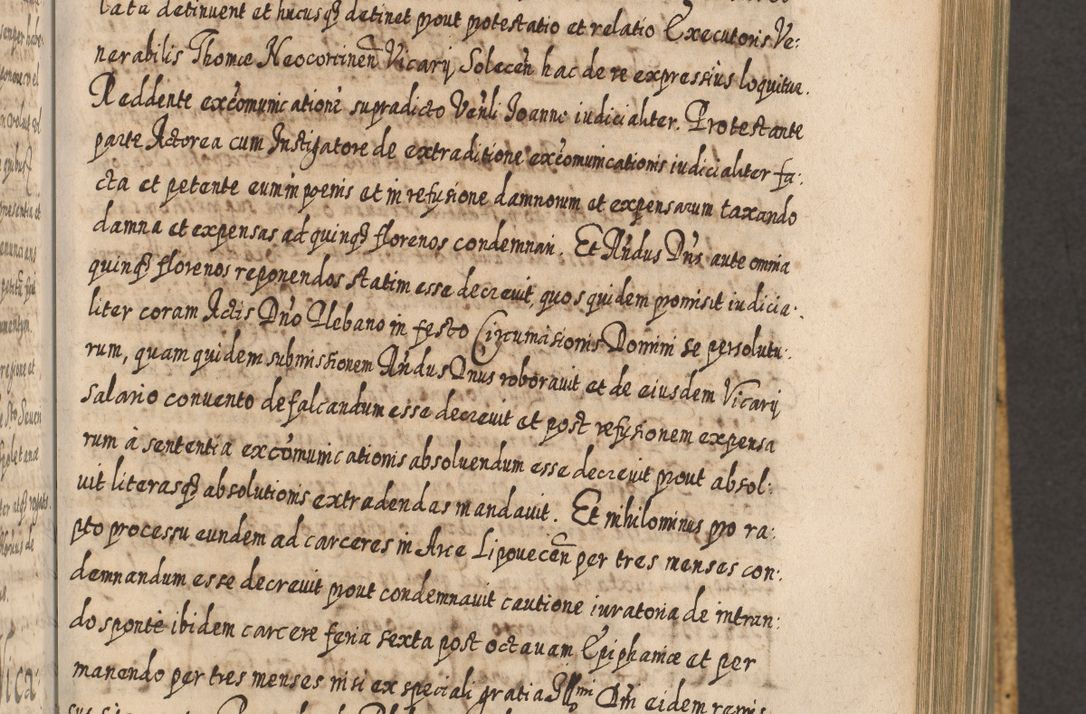 lata detinuent et hucusq₃ detinet prout protestatio et relatio Executoris Ve:
nerabilis Thomæ Neocorcinen̄ Vicarij Solecen̄ hac de re expressius loquitur.
Reddente excōmunicationē supradicto Venli Joanne iudicialiter. Protestante
parte Actorea cum Instigatore de extraditione excōmunicationis iudicialiter fa:
cta et petente eum in poenis et in refusione damnorum et expensarum taxando
damna et expensas ad quinq₃ florenos condemnari. Et Adndus Dn̄s aute omnia
quinq₃ florenos reponendos statim esse decreuit, quos quidem promisit iudicia:
liter coram Actis Dn̄o Plebano in festo Circumcisionis Domini se persolutu:
rum, quam quidem submissionem Adndus Dnus roborauit et de eiusdem Vicarij
salario conuento defalcandum esse decreuit et post refusionem expensa
rum à sententia excōmunicationis absoluendum esse decreuit prout absol:
uit literasq₃ absolutionis extradendas mandauit. Et nihilominus pro ra:
pto processu eundem ad carceres in Arce Lipouecen̄ per tres menses con:
demnandum esse decreuit prout condemnauit cautione iuratoria de intran:
do sponte ibidem carcere feria sexta post octauam Epiphaniæ et per
manendo per tres menses nisi ex speciali gratia Illmi Dni eidem remis